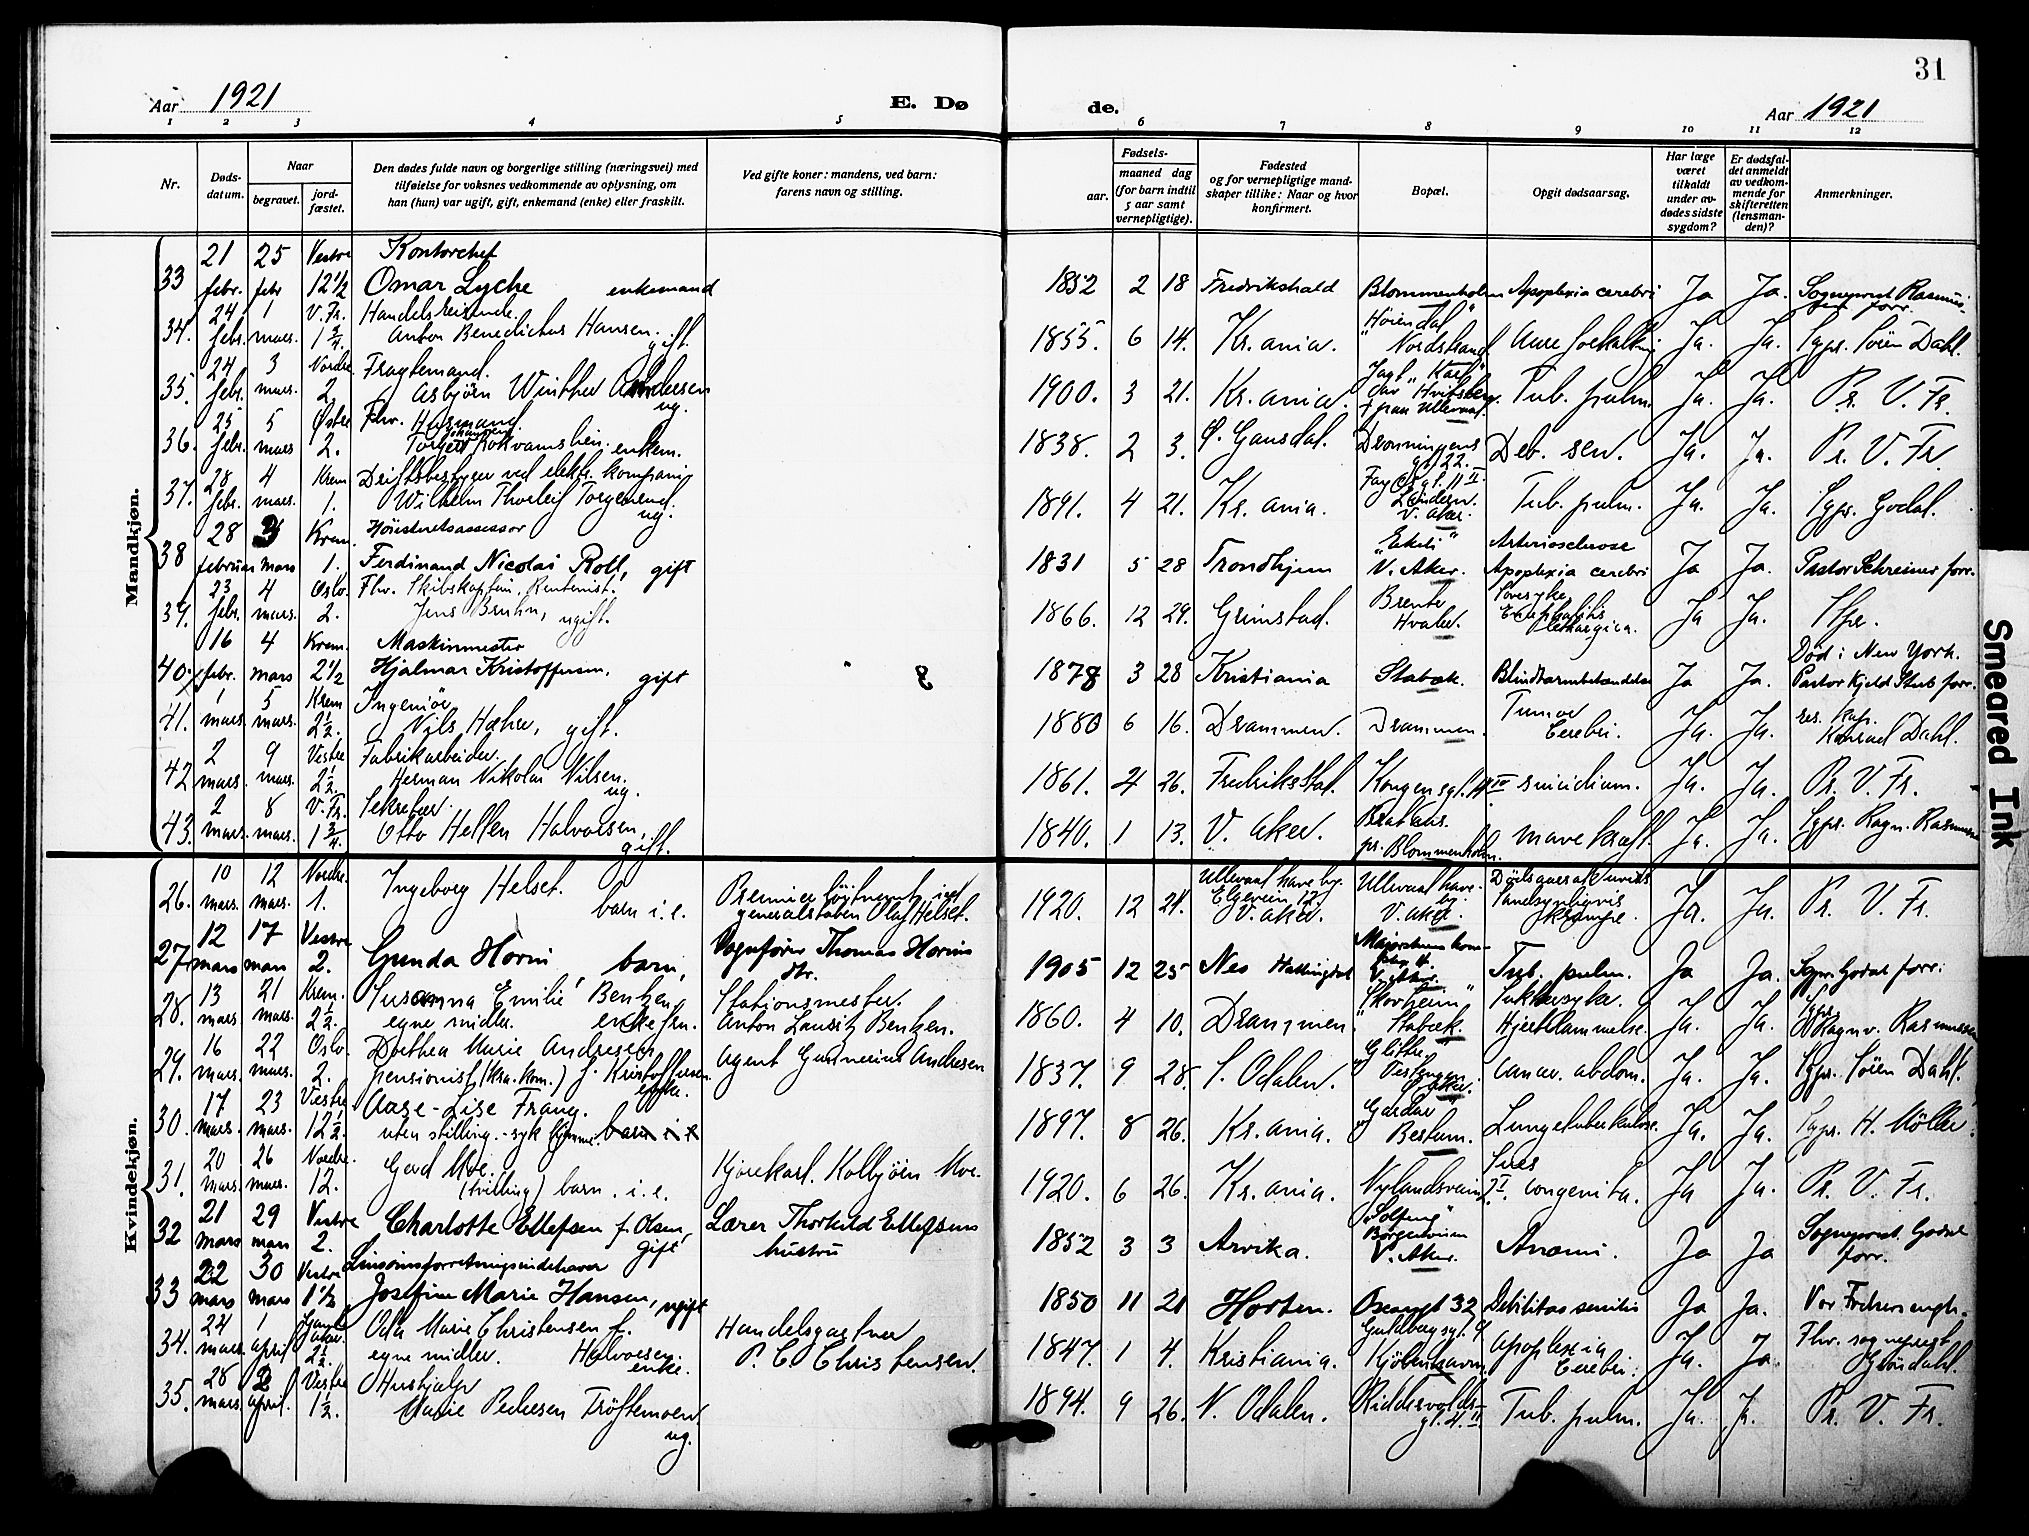 31
Aar 1921 E. Dø de. Aar 1921
1 2 3 4 5 6 7 8 9 10 11 12
Nr. Døds-datum. Naar begravet. jord-fæstet. Den dødes fulde navn og borgerlige stilling (næringsvei) med tilføielse for voksnes vedkommende av oplysning, om han (hun) var ugift, gift, enkemand (enke) eller fraskilt. Ved gifte koner: mandens, ved barn: farens navn og stilling. Fødsels- aar. maaned dag (for barn indtil 5 aar samt vernepligtige). Fødested og for vernepligtige mand-skaper tillike: Naar og hvor konfirmert. Bopæl. Opgit dødsaarsag. Har læge været tilkaldt under av-dødes sidste sygdom? Er dødsfal-det anmeldt av vedkom-mende for skifteretten (lensman-den)? Anmerkninger.
Mandkjøn.
33 21 febr. 25 febr Vestre 12 1/2 Kontorchef Omar Lyche enkemand 1852 2 18 Fredrikshald Blommenholm Apoplexia cerebri Ja Ja. Sogneprest forr.
34. 24 febr. 1 mars. V. Fr. 1 3/4. Handelsreisende. Anton Benedictus Hansen. gift. 1855. 6 14. Kr.ania. "Høiendal" Nordstrand. Ja. Ja. Sgpr. Sören Dahl.
35. 24 febr. 3 mars. Nordre. 2. Fragtemand. Asbjörn Winther Andersen ug. 1900. 3 21. Kr.ania. Jagt "Karl" Tub. pulm. Ja. Ja. Pr. V. Fr.
36. 25 febr. 5 mars Østre 2. Fhv. Husmand. enkem. 1838. 2 3. Dronningens gt. 22. Deb. sen. Ja. Ja. Pr. V. Fr.
37. 28 febr. 4 mars. Krem 1. Driftsbestyrer ved elektr. kompani Wilhelm Thorleif ug. 1891. 4 21. Kr. ania. V. Aker. Tub. pulm. Ja. Ja. Sgpr. Godal.
38 28 februar 3 mars Krem. 1. Høiesteretsassessor Ferdinand Nicolai Roll, gift 1831 5 28 Trondhjem "Ekeli" V. Aker. Arteriosclerose Apoplexia cerebri Ja Ja. Pastor Schreiner forr.
39. 23 febr. 4 mars. Oslo. 2. Fhv. Skibskaptein, Rentenist. Jens Bruhn, ugift. 1866. 12 29. Grimstad. Hvaler. Sovesyke Encephalitis lethargica. Ja Ja.
40. 16 febr. 4 mars Krem. 2 1/2 Maskinmester Hjalmar Kristoffersen. gift 1878 3 28 Kristiania Stabæk. Blindtarmbetændelse Ja Ja. Död i New York. Pastor Kjeld Stub forr.
41. 1 mars. 5 mars. Krem 2 1/2. Ingeniör Nils Hæhre, gift. 1880 6 16. Drammen. Drammen. Tumor Cerebri. Ja. Ja. res. kap. Konrad Dahl.
42 2 mars. 9 mars. Vestre 2 1/2. Fabrikarbeider. Herman Nikolai Nilsen. ug. 1861. 4 26. Fredriksstad. Kongensgt. IV suicidium. Ja. Ja. Pr. V. Fr.
43. 2 mars. 8 mars. V. Fr. 1 3/4. Sekretær. Otto Hellen Halvorsen, gift. 1840. 1 13. V. Aker. pr. Blommenholm. mavekræft Ja. Ja. Sgpr. Ragn. Rasmussen
Kvindekjøn.
26. 10 mars. 12 mars. Nordre. 1. Ingeborg Helset. barn i. e. Premierløytnant i generalstaben Olaf Helset. 1920. 12 21. Ullevaal have by. Elgveien 12. V. Aker. Ullevaal have-by. V. Aker. krampe. Ja. Ja. Pr. V. Fr.
27 12 mars 17 mars Vestre 2. Gunda Horni, barn, Vognfører Thomas Hornis dtr. 1905 12 25 Nes Hallingdal V. Aker. Tub. pulm. Ja Ja. Sgpr. Godal forr.
28. 13 mars 21 mars. Krem. 2 1/2. Susanna Emilie Bentzen egne midler. enkefru. Stationsmester. Anton Lauritz Bentzen. 1860. 4 10. Drammen. "Skovheim" Stabæk. Sukkersyke. Hjertelammelse. Ja. Ja. Sgpr. Ragnv. Rasmussen
29. 16 mars. 22 mars. Oslo. 2. Dorthea Marie Andresen pensionist (kra. kom.) f. Kristoffersen. enke. Agent Andresen 1837. 9 28. S. Odalen. "Glitre" Ö. Aker. Cancer. abdom. Ja. Ja. Sgpr. Sören Dahl.
30. 17 mars. 23 mars. Vestre 12 1/2. Aase-Lise Frang. uten stilling. - syk hjemme. barn i. e. 1897. 8 26. Kr.ania. "Gardar" Bestum. Lungetuberkulose. Ja. Ja. Sgpr. H. Möller.
31. 20 mars. 26 mars. Nordre. 12. Gerd Moe. (tvilling) barn. i. e. Kjørekarl. Kolbjörn Moe. 1920. 6 26. Kr.ania. Nylandsveien Lues congenita. Ja Ja. Pr. V. Fr.
32 21 mars 29 mars Vestre 2. Charlotte Ellefsen f. Olsen, gift Lærer Thorkild Ellefsens hustru 1852 3 3 Arvika. "Solfeng" V. Aker. Anæmi. Ja Ja Sogneprest. Godal forr.
33 22 mars 30 mars Vestre 1 1/2 Josefine Marie Hansen, ugift 1850 11 21 Horten. Oscarsgt 32 Debilitas senilis Ja Ja. Vor Frelsers
34. 24 mars. 1 april Gaml. Aker. 2 1/2. Oda Marie Christensen f. Halvorsen. egne midler. enke. Handelsgartner P. C. Christensen. 1847. 1 4. Kristiania. Guldbergsgt. 9 Kjöbenhavn. Apoplexia Cerebri. Ja. Ja. Fhv. sogneprest Gröndahl.
35. 28 mars. 2 april. Vestre 1 1/2. Hushjælp Marie Pedersen Tröftemoen ug. 1894. 9 26. N. Odalen. Riddervolds-gt. 4. II Tub. pulm. Ja. J. Pr. V. Fr.
Smeared Ink